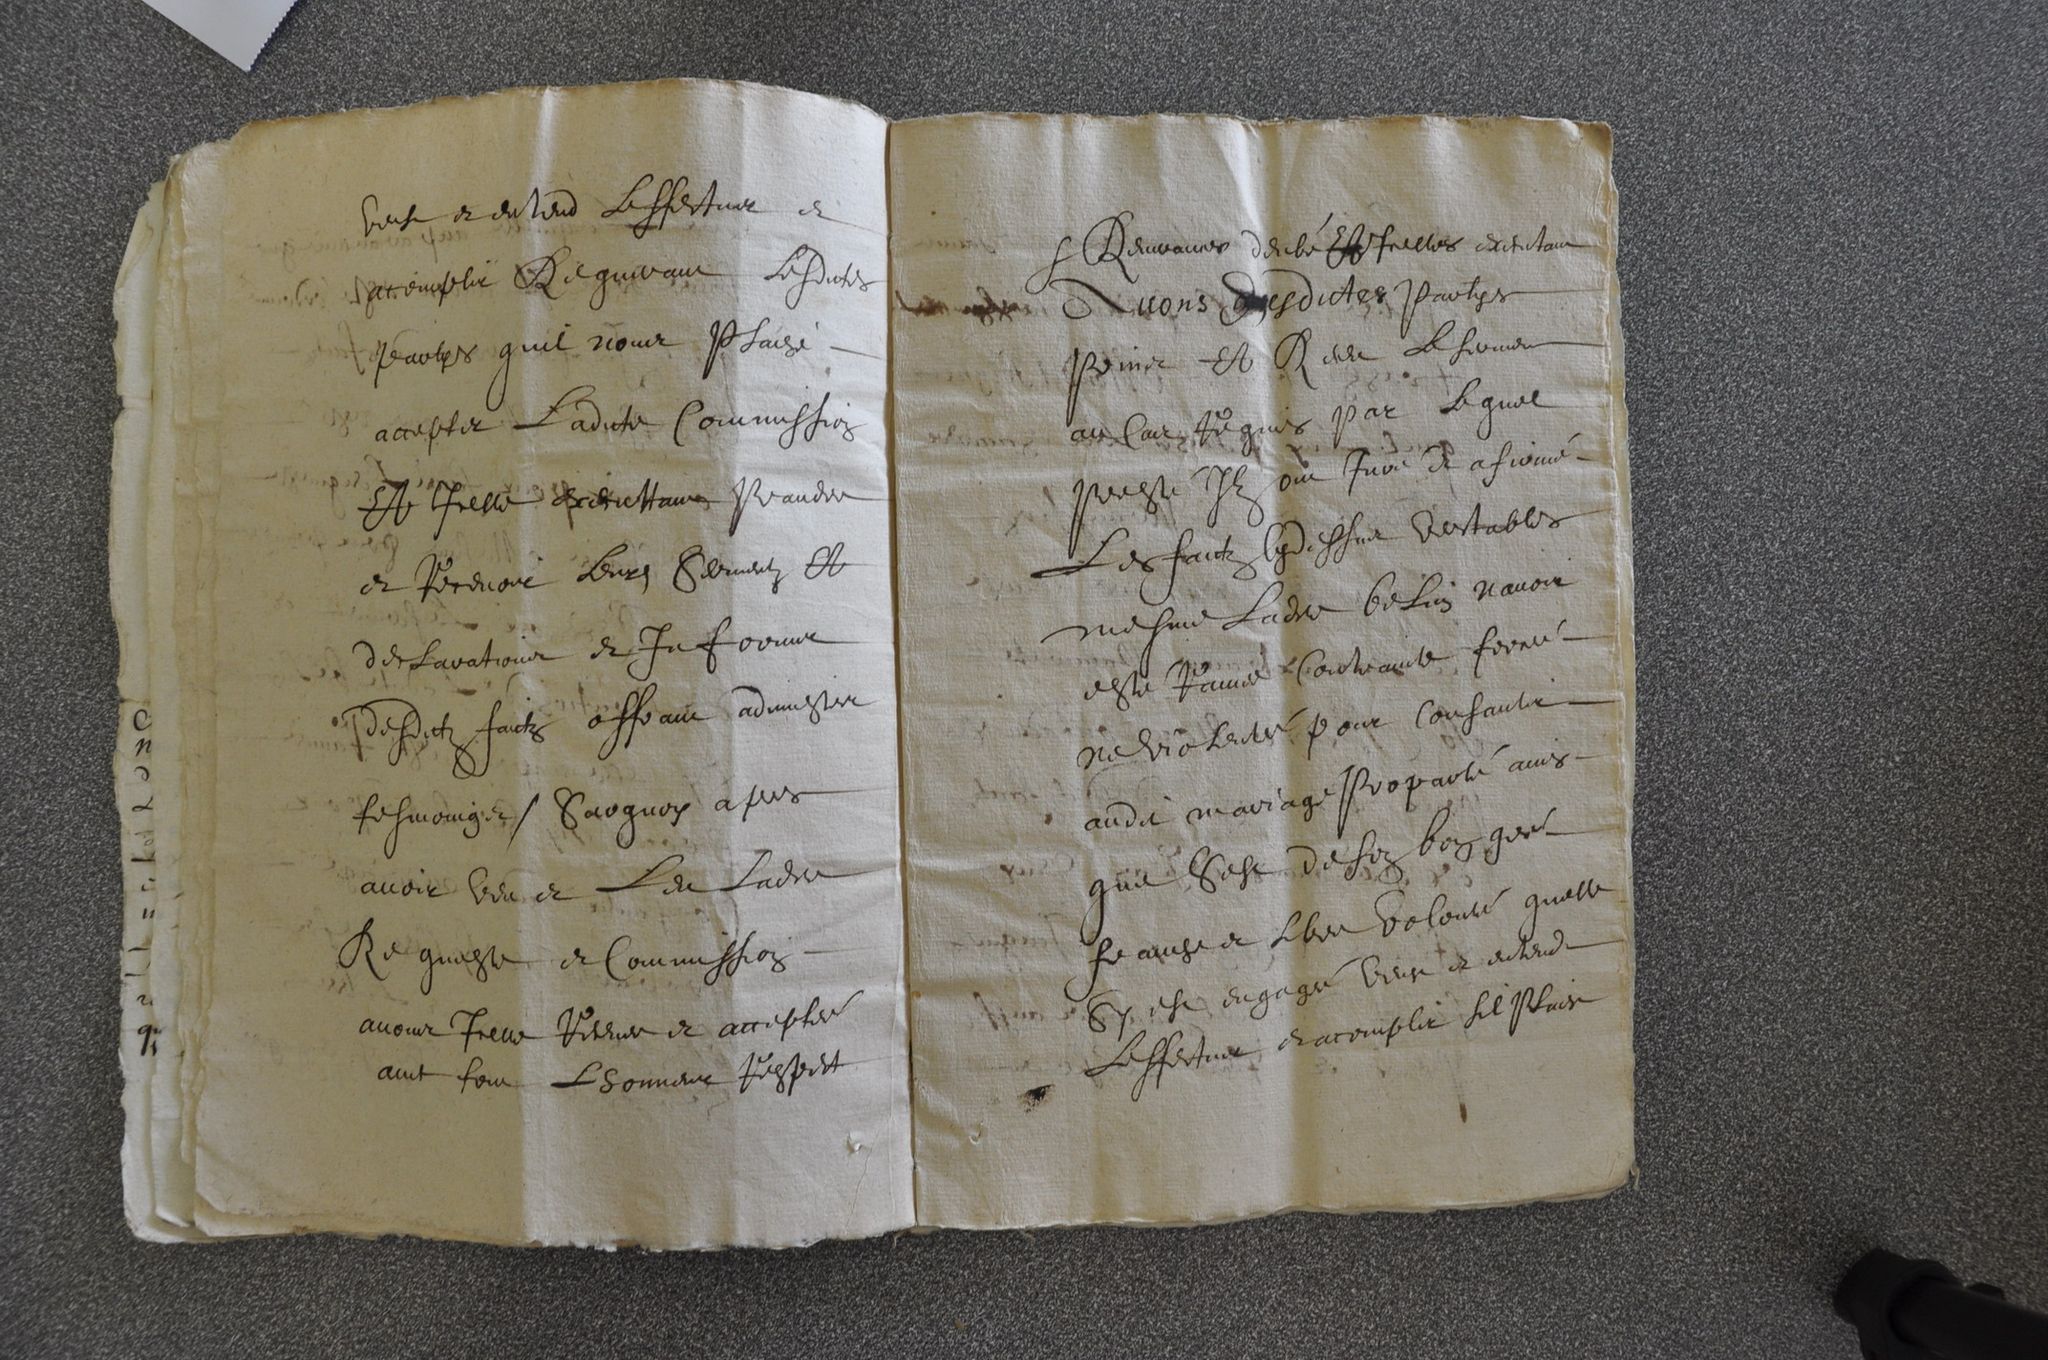 veut et entend L'effectuer et
acomplir Requerant Lesdites
partyes quil nous Plaise
accepter Ladicte Commission
Et Icelle executtant Prandre
et Recevoir Leurs Sermentz Et
declarations et Informer
desdictz faictz offrant administrer
tesmoings / Surquoy apres
avoir veu et Leu Ladite
Requeste et Commission
avons Icelle Receue et acceptée
avec tout Lhonneur Respect
et Icelles executant
Avons desdites Partyes
Prins Et Receu Le serment
au Cas Requis par Lequel
presté Ilz ont Juré et afirmé
Les faictz cydessus veritables
mesme Ladite belin navoir
esté Ravie Contrainte forcée
ne violentée pour Consantir
audit mariage Proparlé ains
que Cest de son bon gré
franche et Libre volonté quelle
Sy est engagée veut et entend
Leffectuer et acomplir sil Plaist